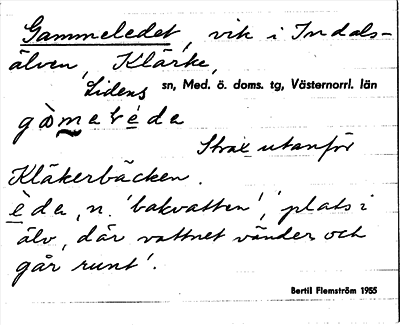 Gammeledet, vik i Indals-
älven, Klärke,
Lidens sn, Med. ö. doms. tg, Västernorrl. län
Strax utanför
Kläkerbäcken.
è̱da, n. 'bakvatten', 'plats i
älv, där vattnet vänder och
går runt'.
Bertil Flemström 1955